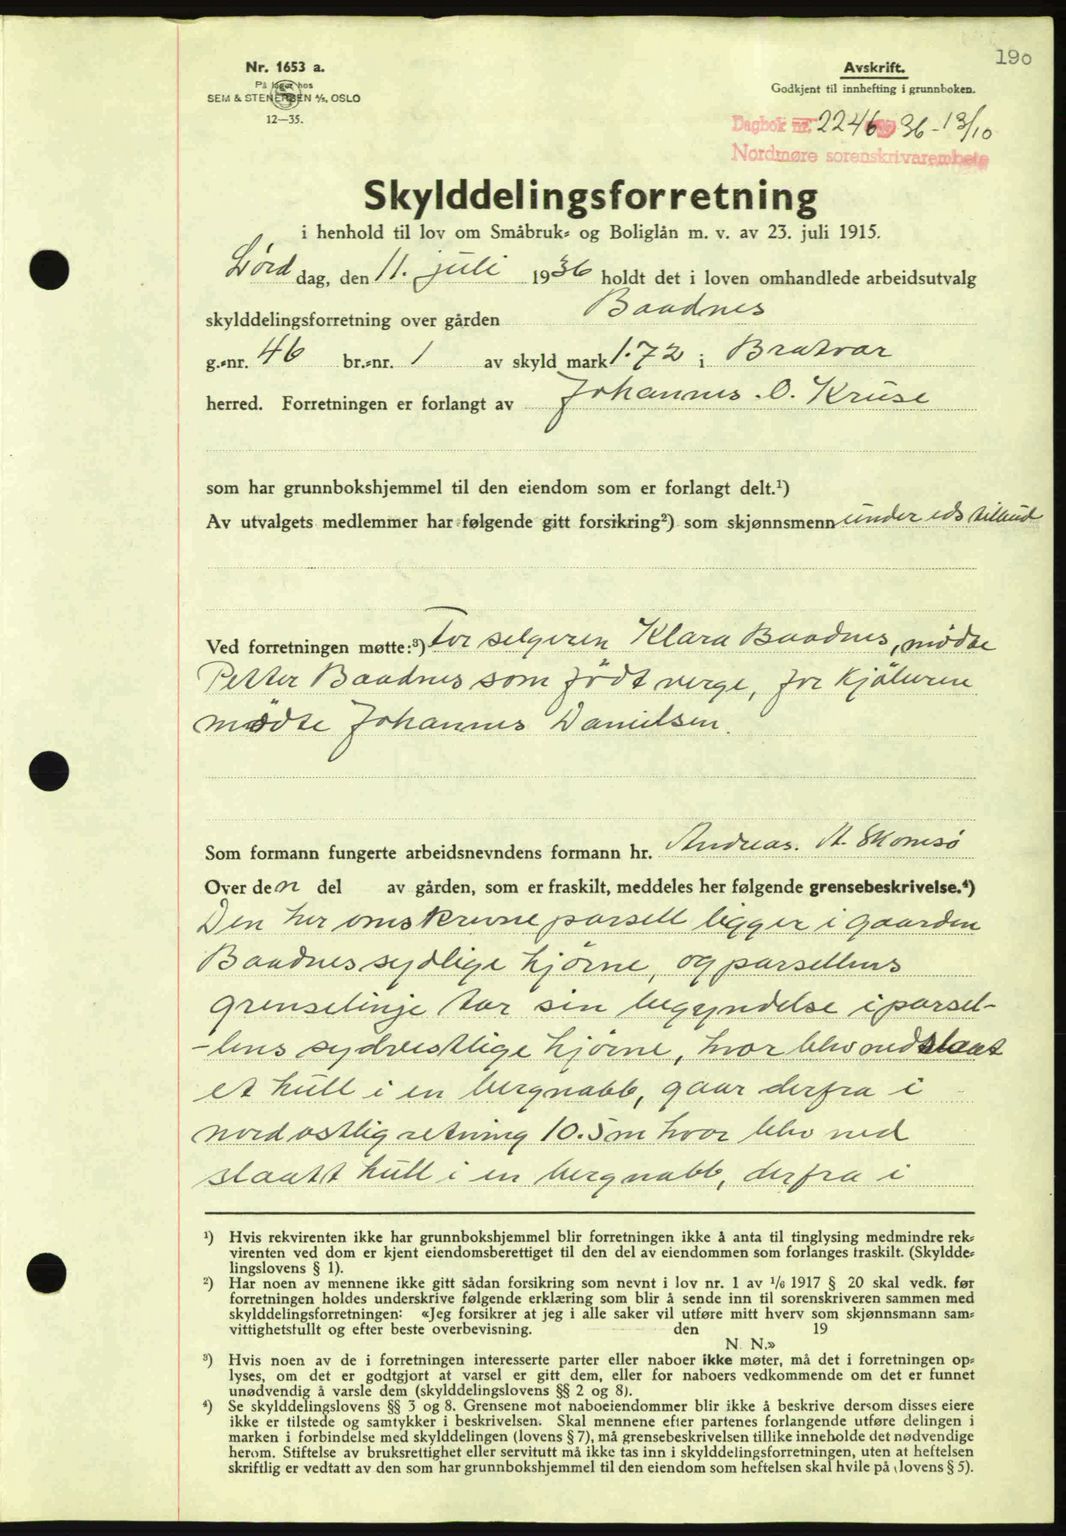 190
Nr. 1653 a.
På lager hos
SEM & STENERSEN A/S, OSLO
12—35.
Avskrift.
Godkjent til innhefting i grunnboken.
Dagbok nr. 2246 36 - 13/10
Nordmøre sorenskrivarembete
Skylddelingsforretning
i henhold til lov om Småbruk- og Boliglån m. v. av 23. juli 1915.
Lørd dag, den 11. juli 1936 holdt det i loven omhandlede arbeidsutvalg
skylddelingsforretning over gården Baadnes
g.-nr. 46 br.-nr. 1 av skyld mark 1.72 i Bratvær
herred. Forretningen er forlangt av Johannes. O. Kruse
som har grunnbokshjemmel til den eiendom som er forlangt delt.¹)
Av utvalgets medlemmer har følgende gitt forsikring²) som skjønnsmenn under eds tilbud
Ved forretningen møtte:³) For selgeren Klara Baadnes, mødte
Petter Baadnes som født verge, for kjøberen
mødte Johannes Danielsen.
Som formann fungerte arbeidsnevndens formann hr. Andreas. A. Skomsø
Over den del av gården, som er fraskilt, meddeles her følgende grensebeskrivelse.⁴)
Den her omskrevne parsell ligger i gaarden
Baadnes sydlige hjørne, og parsellens
grenselinje tar sin begyndelse i parsel-
-lens sydvestlige hjørne, hvor blev nedslaat
et hull i en bergnabb, gaar derfra i
nordostlig retning 10.5 m hvor blev ned
slaatt hull i en bergnabb, derfra i
¹) Hvis rekvirenten ikke har grunnbokshjemmel blir forretningen ikke å anta til tinglysing medmindre rek-
virenten ved dom er kjent eiendomsberettiget til den del av eiendommen som forlanges fraskilt. (Skyldde-
lingslovens § 1).
²) Har noen av mennene ikke gitt sådan forsikring som nevnt i lov nr. 1 av ¹/₆ 1917 § 20 skal vedk. før
forretningen holdes underskrive følgende erklæring som blir å sende inn til sorenskriveren sammen med
skylddelingsforretningen: «Jeg forsikrer at jeg i alle saker vil utføre mitt hverv som skjønnsmann sam-
vittighetsfullt og efter beste overbevisning. den 19
N. N.»
³) Hvis noen av de i forretningen interesserte parter eller naboer ikke møter, må det i forretningen op-
lyses, om det er godtgjort at varsel er gitt dem, eller for naboers vedkommende om det er funnet
unødvendig å varsle dem (skylddelingslovens §§ 2 og 8).
⁴) Se skylddelingslovens §§ 3 og 8. Grensene mot naboeiendommer blir ikke å beskrive dersom disses eiere
ikke er tilstede og samtykker i beskrivelsen. Skal mennene efter partenes forlangende utføre delingen i
marken i forbindelse med skylddelingen (lovens § 7), må grensebeskrivelsen tillike inneholde det nødvendige
herom. Stiftelse av bruksrettighet eller servitutt må ikke tas inn i skylddelingsforretningen, uten at heftelsen
skriftlig er vedtatt av den som har grunnbokshjemmel til den eiendom som heftelsen skal hvile på (lovens § 5).